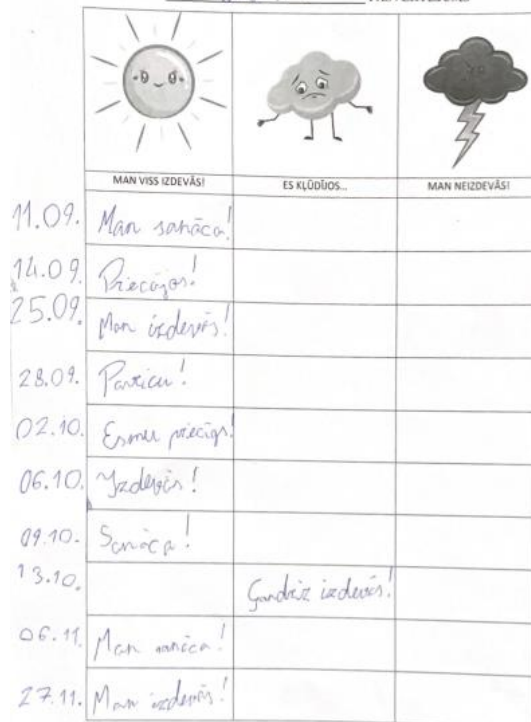 MAN VISS IZDEVĀS!
ES KĻŪDĪJOS...
MAN NEIZDEVĀS!
11.09. Man sanāca!
14.09. Priecājos!
25.09. Man izdevās!
28.09. Paticu!
02.10. Esmu priecīgs!
06.10. Izdevās!
09.10. Sanāca!
13.10. Gandrīz izdevās!
06.11. Man sanāca!
27.11. Man izdevās!